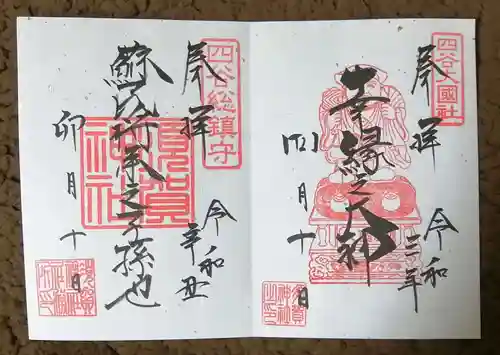 四谷大國社
奉拝
令和三年
幸縁之大神
四月十日
須賀神社之印
四谷総鎮守
奉拝
令和辛丑
蘇民将来之子孫也
須賀神社
卯月十日